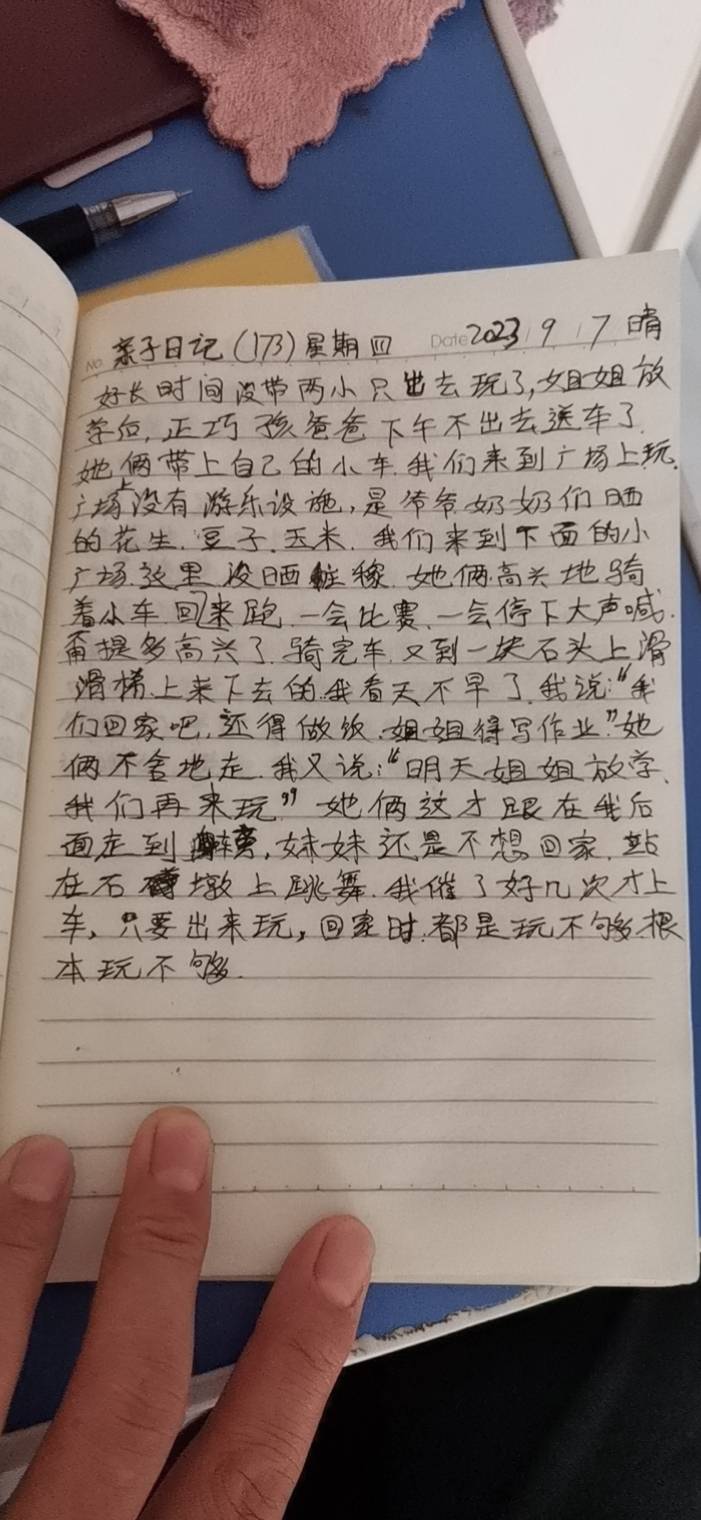 No. 亲子日记(173)星期四 Date 2023 / 9 / 7 晴
好长时间没带两小只出去玩了,姐姐放
学后,正巧孩爸爸下午不出去送车了.
她俩带上自己的小车.我们来到广场上玩.
广场上没有游乐设施,是爷爷奶奶们晒
的花生.豆子.玉米.我们来到下面的小
广场.这里没晒庄稼.她俩高兴地骑
着小车回来跑.一会比赛.一会停下大声喊.
甭提多高兴了.骑完车.又到一块石头上滑
滑梯.上来下去的.我看天不早了.我说:“我
们回家吧,还得做饭.姐姐得写作业.”她
俩不舍地走.我又说:“明天姐姐放学.
我们再来玩”她俩这才跟在我后
面走到车旁,妹妹还是不想回家.站
在石墩上跳舞.我催了好几次才上
车,只要出来玩,回家时.都是玩不够.根
本玩不够.